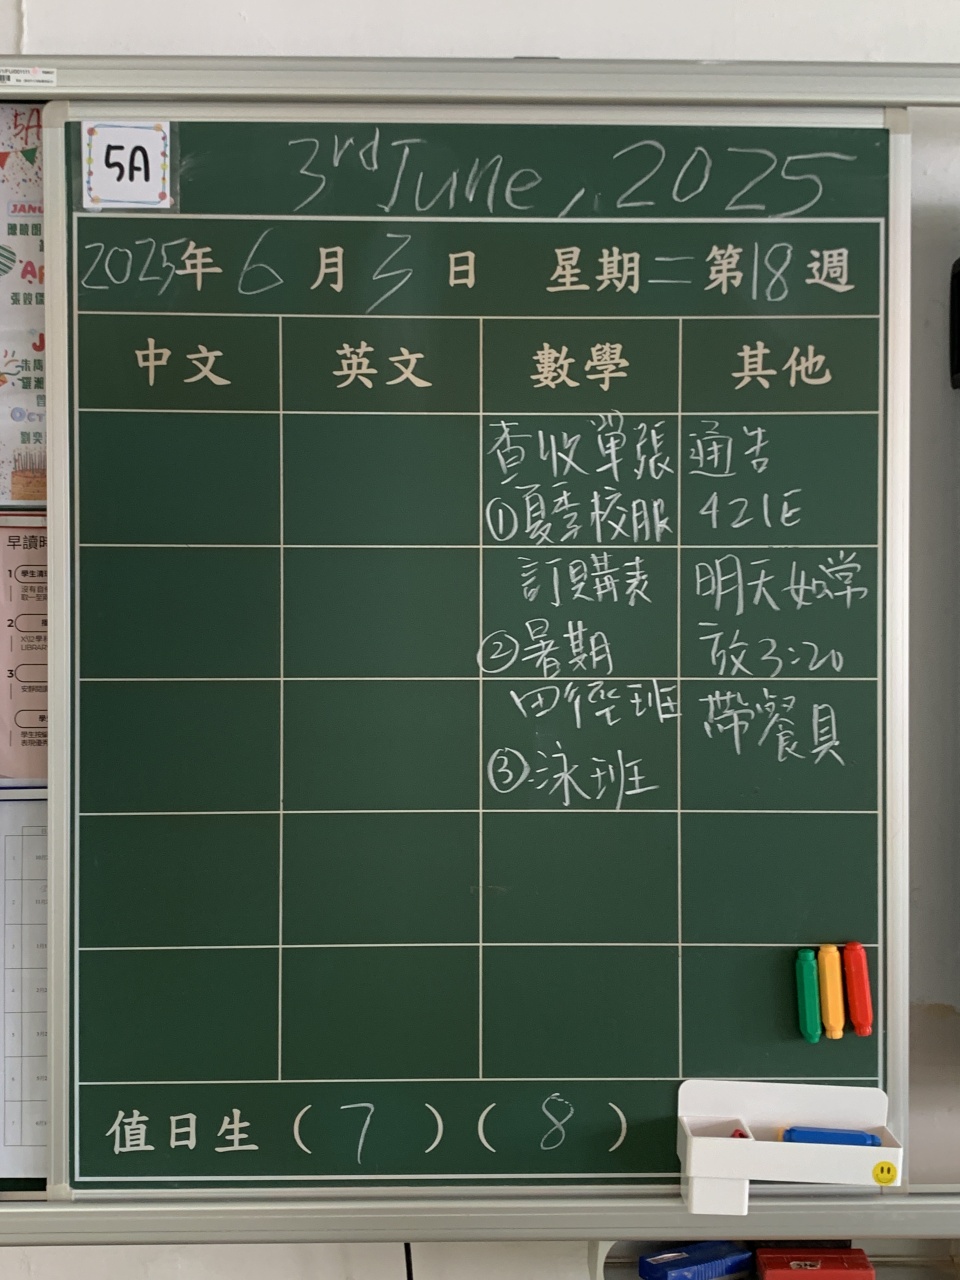 5A
3rd June, 2025
2025年6月3日 星期二 第18週
中文 英文 數學 其他
查收單張
①夏季校服
訂購表
②暑期
田徑班
③泳班
通告
421E
明天如常
放3:20
帶餐具
值日生(7)(8)
5A
早讀時
1
2
3